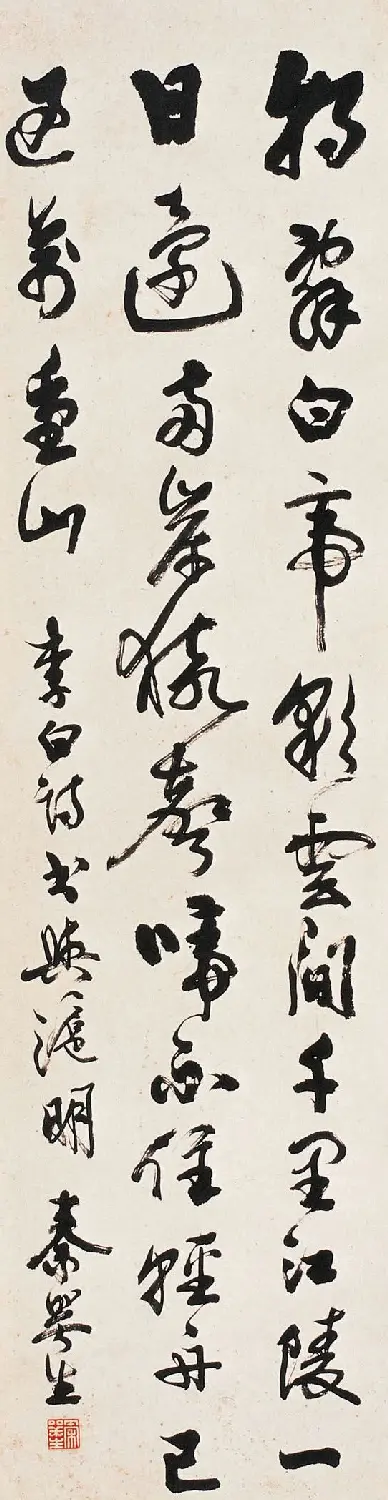 朝辭白帝彩雲間千里江陵一
日還兩岸猿聲啼不住輕舟已
過萬重山 李白詩書與滬明 秦咢生